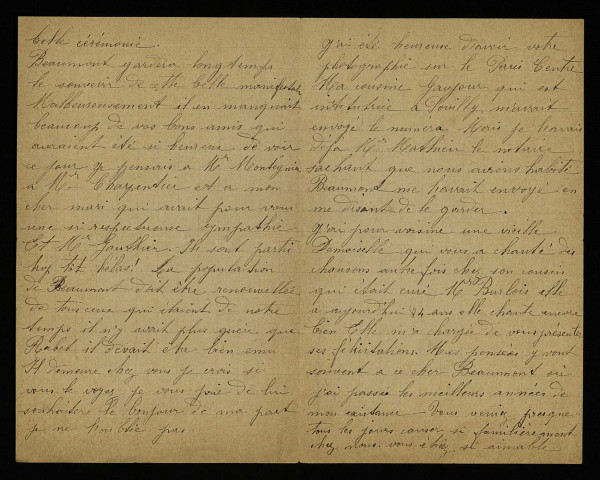 Cette cérémonie.
Beaumont gardera longtemps
le souvenir de cette belle
Malheureusement il en manquait
beaucoup de vos bons amis qui
auraient été si heureux de voir
ce jour je pensais a Mr
a Mr Charpentier et a mon
cher mari qui avait pour vous
une si respectueuse sympathie
Et Mr Gauthier. Ils sont parti
trop tôt hélas! La population
de Beaumont doit être renouvellée
de tous ceux qui étaient de notre
temps il n'y avait plus guère que
Rabet il devait etre bien ému
Il demeure chez vous je crois si
vous le voyez je vous prie de lui
souhaiter le bonjour de ma part
je ne l'oublie pas
J'ai été heureuse d'avoir votre
photographie sur le Paris Centre
Ma cousine Gaujour qui est
institutrice a Pouilly m'avait
envoyé le numéro. Mais je l'avais
déja Mr Mathieu le notaire
sachant que nous avions habité
Beaumont me l'avait envoyé en
me disant de le garder.
J'ai pour voisine une vieille
Demoiselle qui vous a chanté des
chansons autrefois chez son cousin
qui était curé Mr elle
a aujourd'hui 84 ans elle chante encore
bien Elle m'a chargée de vous présenter
ses félicitations. Mes pensées y vont
souvent a ce cher Beaumont où
j'ai passée les meilleurs années de
mon existance Vous veniez presque
tous les jours causer si familièrement
chez nous vous étiez si aimable